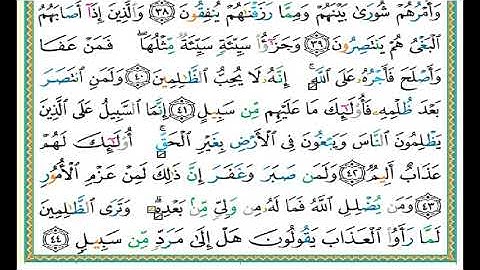 وَأَمْرُهُمْ شُورَىٰ بَيْنَهُمْ وَمِمَّا رَزَقْنَٰهُمْ يُنفِقُونَ ٣٨ وَٱلَّذِينَ إِذَآ أَصَابَهُمُ
ٱلْبَغْىُ هُمْ يَنتَصِرُونَ ٣٩ وَجَزَٰٓؤُا۟ سَيِّئَةٍ سَيِّئَةٌ مِّثْلُهَا فَمَنْ عَفَا
وَأَصْلَحَ فَأَجْرُهُۥ عَلَى ٱللَّهِ إِنَّهُۥ لَا يُحِبُّ ٱلظَّٰلِمِينَ ٤٠ وَلَمَنِ ٱنتَصَرَ
بَعْدَ ظُلْمِهِۦ فَأُو۟لَٰٓئِكَ مَا عَلَيْهِم مِّن سَبِيلٍ ٤١ إِنَّمَا ٱلسَّبِيلُ عَلَى ٱلَّذِينَ
يَظْلِمُونَ ٱلنَّاسَ وَيَبْغُونَ فِى ٱلْأَرْضِ بِغَيْرِ ٱلْحَقِّ أُو۟لَٰٓئِكَ لَهُمْ
عَذَابٌ أَلِيمٌ ٤٢ وَلَمَن صَبَرَ وَغَفَرَ إِنَّ ذَٰلِكَ لَمِنْ عَزْمِ ٱلْأُمُورِ
٤٣ وَمَن يُضْلِلِ ٱللَّهُ فَمَا لَهُۥ مِن وَلِىٍّ مِّنۢ بَعْدِهِۦ وَتَرَى ٱلظَّٰلِمِينَ
لَمَّا رَأَوُا۟ ٱلْعَذَابَ يَقُولُونَ هَلْ إِلَىٰ مَرَدٍّ مِّن سَبِيلٍ ٤٤